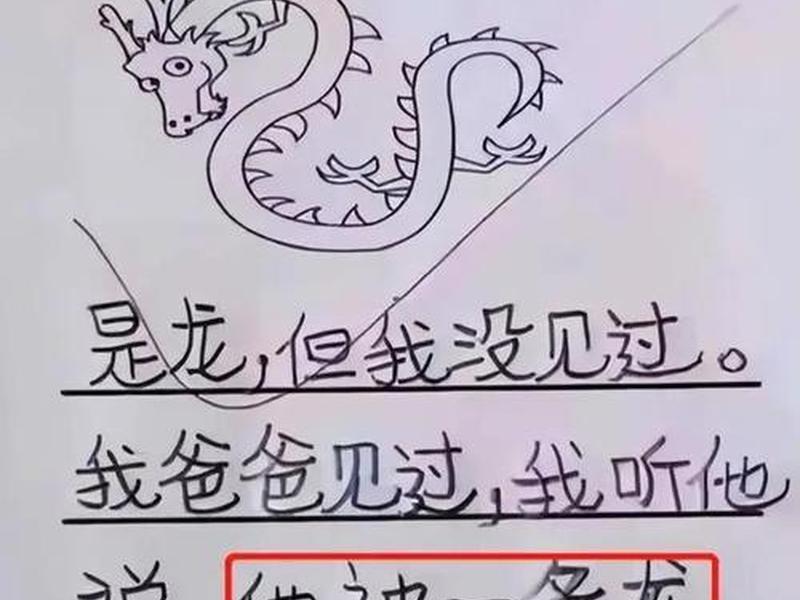 是龙,但我没见过。
我爸爸见过,我听他
说